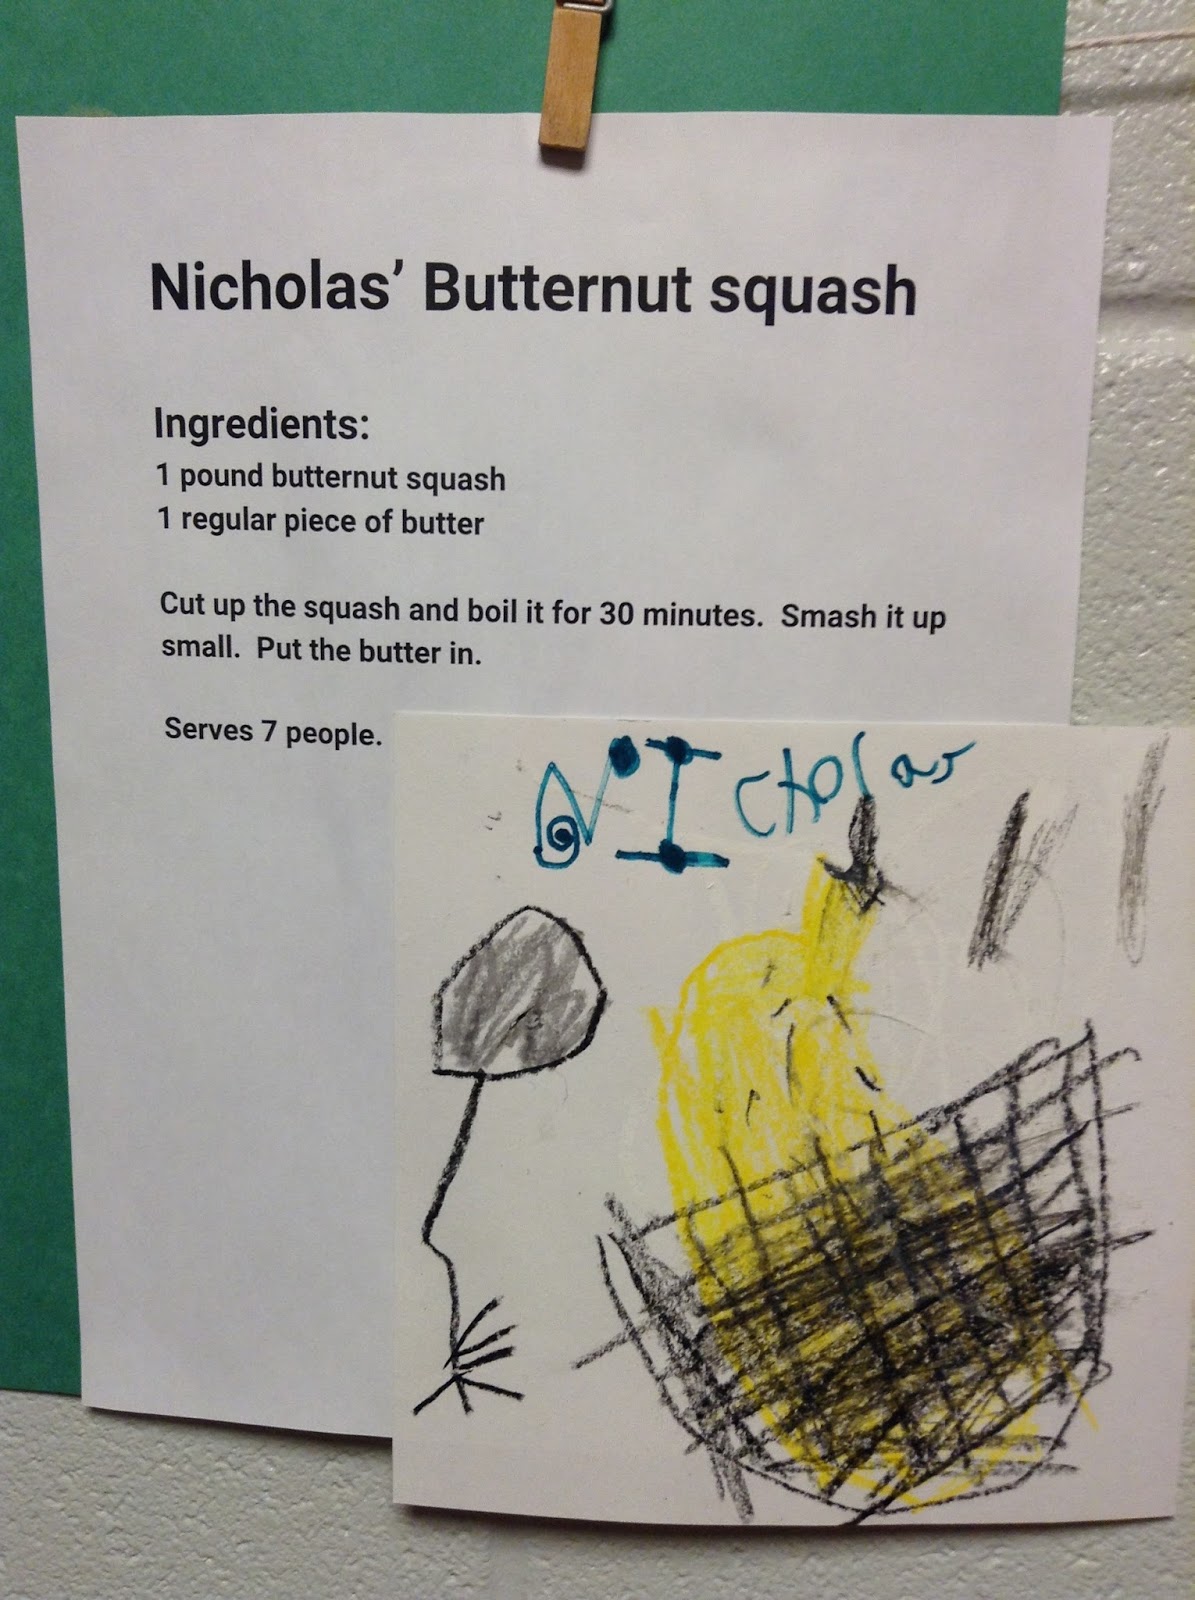 Nicholas’ Butternut squash
Ingredients:
1 pound butternut squash
1 regular piece of butter
Cut up the squash and boil it for 30 minutes.  Smash it up
small.  Put the butter in.
Serves 7 people.
NIcholas